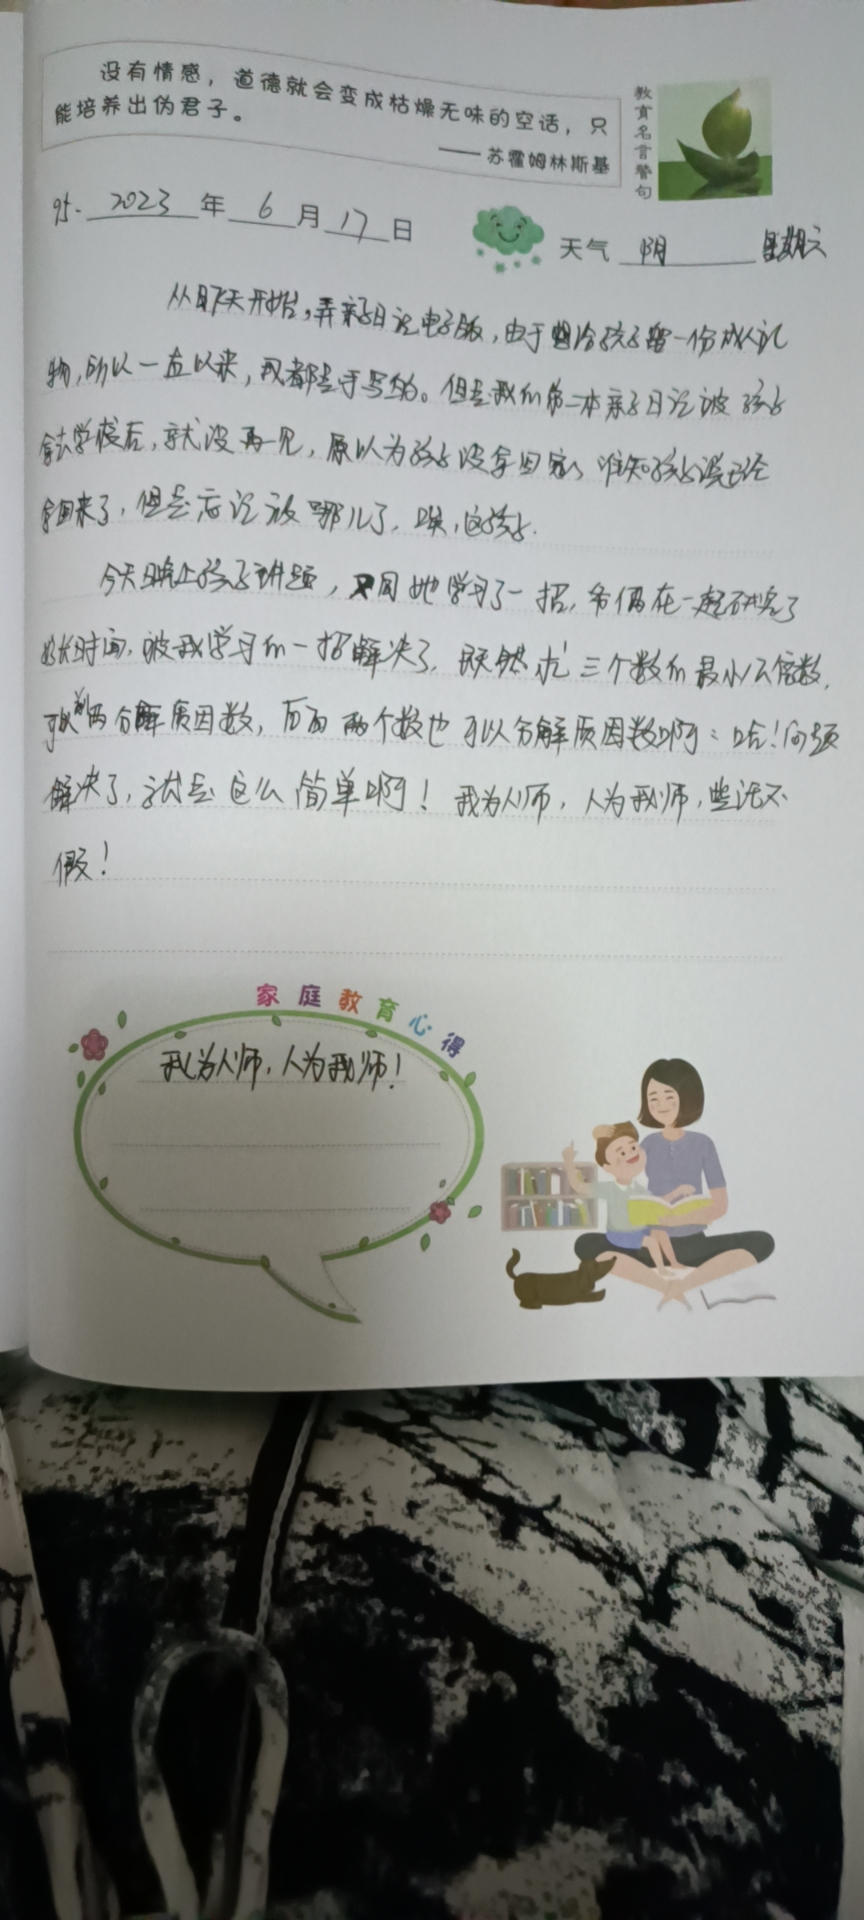 没有情感，道德就会变成枯燥无味的空话，只
能培养出伪君子。
——苏霍姆林斯基
教育名言警句
95. 2023年6月17日
天气 阴 星期六
从昨天开始，弄亲子日记电子版，由于想给孩子留一份成人礼
物，所以一直以来，我都是手写的。但是我们第二本亲子日记被孩子
拿去学校后，就没再见，原以为孩子没拿回家，谁知孩子说已经
拿回来了，但是忘记放哪儿了，唉，这孩子.
今天晚上孩子讲题，又同她学习了一招，爷俩在一起研究了
好长时间，被我学习的一招解决了，既然求三个数的最小公倍数，
可以前两分解质因数，后面两个数也可以分解质因数啊；哈！问题
解决了，就是这么简单啊！我为人师，人为我师，些话不
假！
家庭教育心得
我为人师，人为我师！